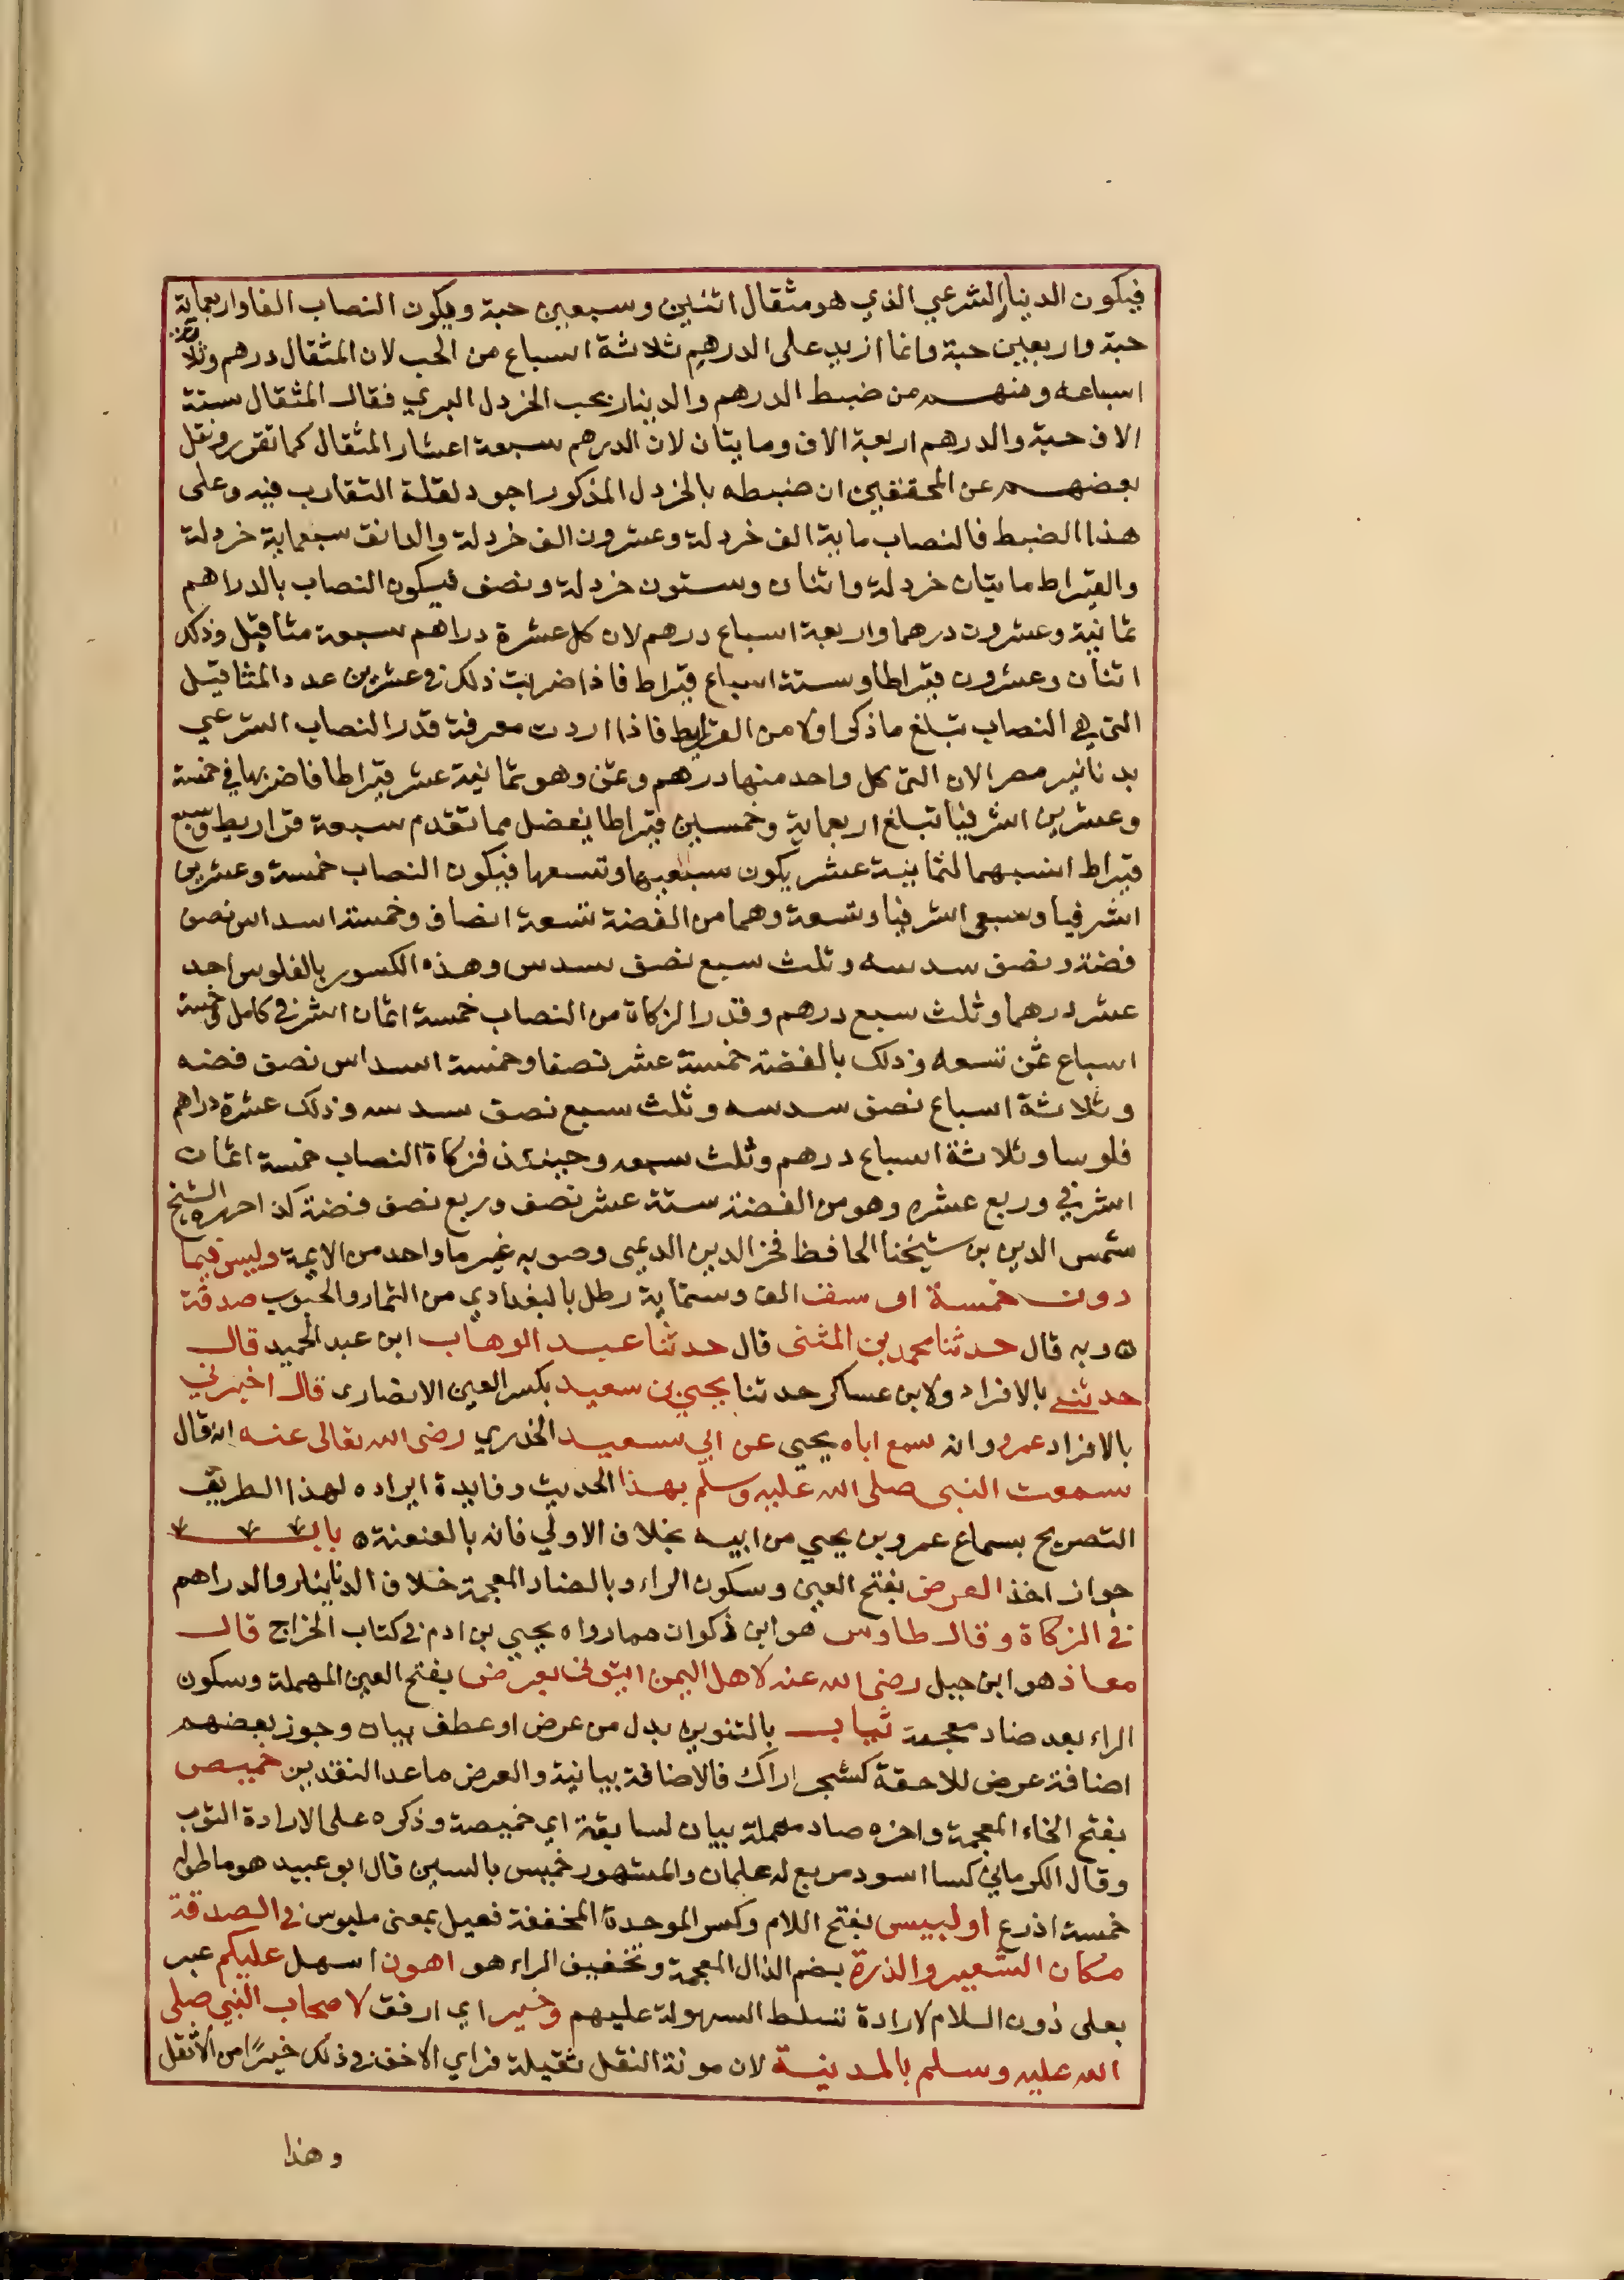 فيكون الدينار الشرعي الذي هو مثقال اثنين وسبعين حبة ويكون النصاب الفا واربعماية
حبة واربعين حبة وانما ازيد على الدرهم ثلاثة اسباع من الحب لان المثقال درهم وثلاثة
اسباعه ومنهم من ضبط الدرهم والدينار بحب الخردل البري فقال المثقال ستة
الاف حبة والدرهم اربعة الاف ومايتان لان الدرهم سبعة اعشار المثقال كما تقرر ونقل
بعضهم عن المحققين ان ضبطه بالخردل المذكور اجود لقلة التقارب فيه وعلى
هذا الضبط فالنصاب ماية الف خردلة وعشرون الف خردلة والدانق سبعماية خردلة
والقيراط مايتان خردلة واثنان وستون خردلة ونصف فيكون النصاب بالدراهم
ثمانية وعشرون درهما واربعة اسباع درهم لان كل عشرة دراهم سبعة مثاقيل وذلك
اثنان وعشرون قيراطا وستة اسباع قيراط فاذا ضربت ذلك في عشرين عدد المثاقيل
التي هي النصاب تبلغ ما ذكر اولا من القراريط فاذا اردت معرفة قدر النصاب الشرعي
بدنانير مصر الان التي كل واحد منها درهم وثمن وهو ثمانية عشر قيراطا فاضربها في خمسة
وعشرين اشرفيا تبلغ اربعماية وخمسين قيراطا يفضل مما تقدم سبعة قراريط وسبع
قيراط انسبهما لثمانية عشر يكون سبعيها وتسعها فيكون النصاب خمسة وعشرين
اشرفيا وسبعي اشرفيا وتسعه وهما من الفضة تسعة انصاف وخمسة اسداس نصف
فضة ونصف سدسه وثلث سبع نصف سدس وهذه الكسور بالفلوس احد
عشر درهما وثلث سبع درهم وقدر الزكاة من النصاب خمسة اثمان اشرفي كامل وخمسة
اسباع ثمن تسعه وذلك بالفضة خمسة عشر نصفا وخمسة اسداس نصف فضه
وثلاثة اسباع نصف سدسه وثلث سبع نصف سدسه وذلك عشرة دراهم
فلوسا وثلاثة اسباع درهم وثلث سبعه وحينئذ فزكاة النصاب خمسة اثمان
اشرفي وربع عشره وهو من الفضة ستة عشر نصف وربع نصف فضة كذا حرره الشيخ
شمس الدين بن شيخنا الحافظ فخر الدين الديمي وصوبه غير ما واحد من الايمة وليس فيما
دون خمسة اوسق الف وستماية رطل بالبغدادي من الثمار والحبوب صدقة
ه وبه قال حدثنا محمد بن المثنى قال حدثنا عبد الوهاب ابن عبد الحميد قال
حدثني بالافراد ولابن عساكر حدثنا يحيي بن سعيد بكسر العين الانصارى قال اخبرني
بالافراد عمرو انه سمع اباه يحيى عن ابي سعيد الخدري رضى الله تعالى عنه انه قال
سمعت النبي صلى الله عليه وسلم بهذا الحديث وفايدة ايراده لهذا الطريق
التصريح بسماع عمرو بن يحيي من ابيه بخلاف الاولي فانه بالعنعنة ه باب
جواز اخذ العرض بفتح العين وسكون الراء وبالضاد المعجمة خلاف الدنانير والدراهم
في الزكاة وقال طاوس هو ابن ذكوان مما رواه يحيي بن ادم في كتاب الخراج قال
معاذ هو ابن جبل رضى الله عنه لاهل اليمن ايتوني بعرض بفتح العين المهملة وسكون
الراء بعد ضاد معجمة ثياب بالتنوين بدل من عرض او عطف بيان وجوز بعضهم
اضافة عرض للاحقة كشجر اراك فالاضافة بيانية والعرض ما عدا النقدين خميص
بفتح الخاء المعجمة واخره صاد مهملة بيان لسابقة اي خميصة وذكره على الارادة الثوب
وقال الكرماني كسا اسود مربع له علمان والمشهور خميس بالسين قال ابو عبيد هو ما طوله
خمسة اذرع او لبيس بفتح اللام وكسر الموحدة المخففة فعيل بمعنى ملبوس في الصدقة
مكان الشعير والذرة بضم الذال المعجمة وتخفيف الراء هو اهون اسهل عليكم عبر
بعلى دون السلام لارادة تسلط السهولة عليهم وخير اي ارفق لاصحاب النبي صلى
الله عليه وسلم بالمدينة لان مونة النقل ثقيلة فراي الاخف في ذلك خيرًا من الاثقل
وهذا